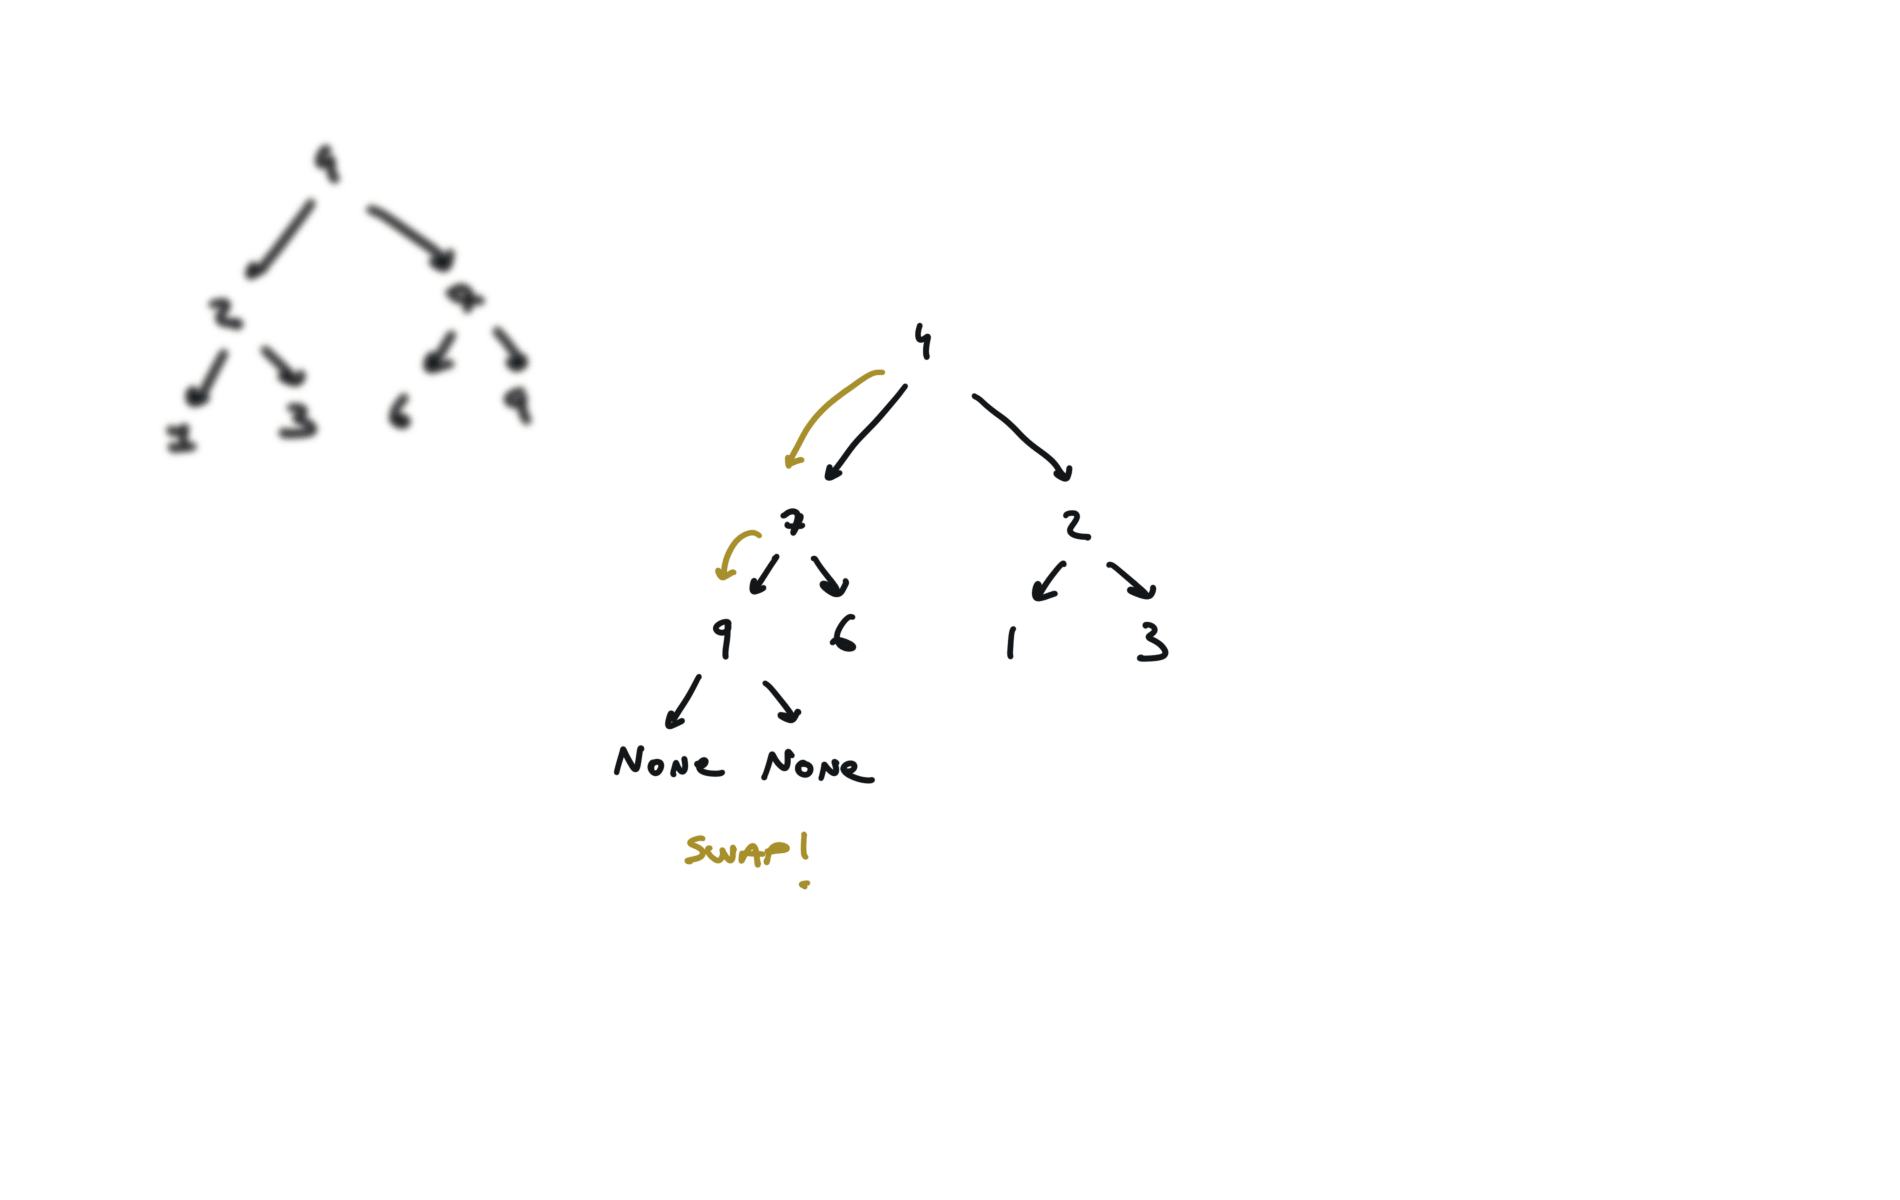 4
2 7
1 3 6 9
4
7 2
9 6 1 3
None None
SWAP!